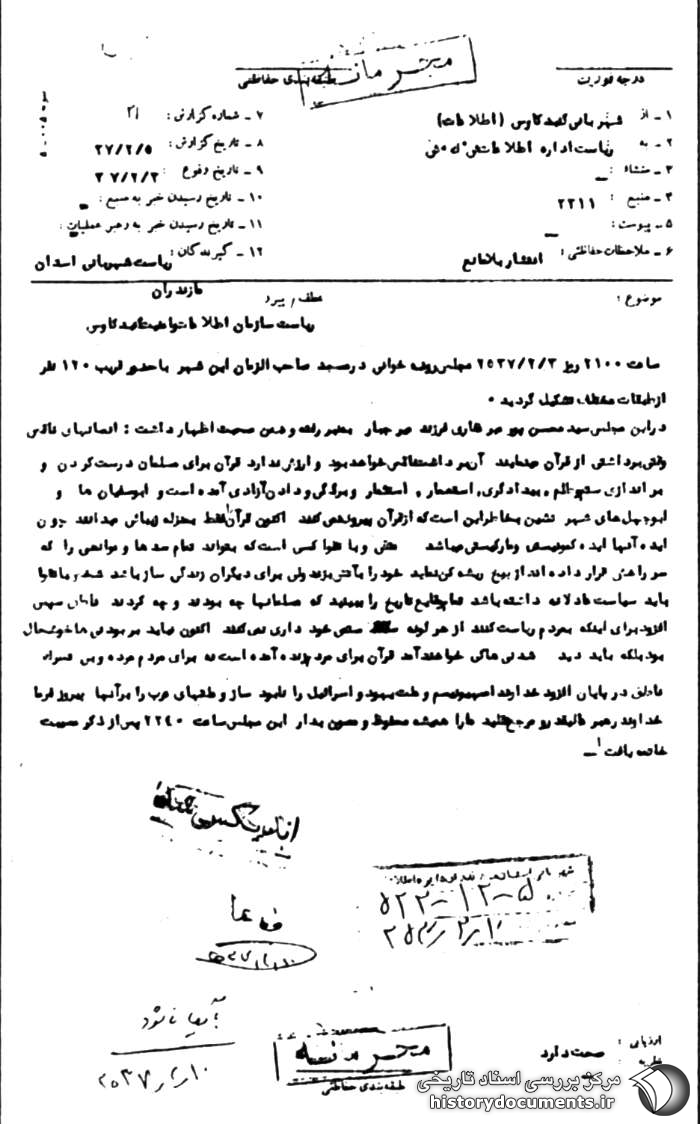 محرمانه
درجه فوریت
طبقه‌بندی حفاظتی
۱ ـ از : شهربانی گنبد کاوس (اطلاعات)
۲ ـ به : ریاست اداره اطلاعات
۳ ـ منشاء : ـ
۴ ـ منبع : ۲۲۱۱
۵ ـ پیوست : ـ
۶ ـ ملاحظات حفاظتی : انتشار بلامانع
۷ ـ شماره گزارش : ۲۱
۸ ـ تاریخ گزارش : ۳۷/۲/۵
۹ ـ تاریخ وقوع : ۳۷/۲/۳
۱۰ ـ تاریخ رسیدن خبر به منبع : ـ
۱۱ ـ تاریخ رسیدن خبر به رهبر عملیات : ـ
۱۲ ـ گیرندگان : ریاست شهربانی استان
مازندران
موضوع :
ریاست سازمان اطلاعات و امنیت گنبد کاوس
ساعت ۲۱۰۰ روز ۲۵۳۷/۲/۳ مجلس روضه خوانی در مسجد صاحب الزمان این شهر با حضور قریب ۱۲۰ نفر
از طبقات مختلف تشکیل گردید ۰
در این مجلس سید محسن پور میر غفاری فرزند میر جبار بمنبر رفته و ضمن صحبت اظهار داشت : انسانهای ناقص
وقتی برداشتی از قرآن مینمایند آن برداشت ناقص خواهد بود و ارزش ندارد قرآن برای مسلمان درست کردن و
بر اندازی ستم و ظلم , بیدادگری , استعمار , استثمار و بردگی و دادن آزادی آمده است و ابوسفیان ها و
ابوجهل های شهر نشین بخاطر این است که از قرآن پیروی نمی کنند اکنون قرآن فقط بمنزله زیبائی میدانند چون
ایده آنها ایده کمونیستی و مارکیستی میباشد متقی و با تقوا کسی است که بتواند تمام سدها و موانعی را که
سر راهش قرار داده اند از بیخ ریشه کن نماید خود را بآتش بزند ولی برای دیگران زندگی ساز باشد با تقوا
باید سیاست عادلانه داشته باشد تمام وقایع تاریخ را ببینید که مسلمانها چه بودند و چه کردند سپس
افزود برای اینکه بمردم ریاست کنند از هر گونه ستمی خود داری نمی کنند اکنون نباید بر بودنی ها خوشحال
بود بلکه باید دید شدنی ها کی خواهند آمد قرآن برای مرد زنده آمده است نه برای مردم مرده و بی تفاوت
ناطق در پایان افزود خداوند صهیونیسم و ملت یهود و اسرائیل را نابود ساز و ملتهای عرب را بر آنها پیروز فرما
خداوند رهبر عالیقدر و مرجع تقلید ما را همیشه محفوظ و مصون بدار این مجلس ساعت ۲۲۴۰ پس از ذکر مصیبت
خاتمه یافت
۵ـ۱۲ـ۵۲۲
بایگانی شود
۲۵۳۷
محرمانه
طبقه بندی حفاظتی
ارزیابی : صحت دارد
نظریه :
مرکز بررسی اسناد تاریخی
historydocuments.ir